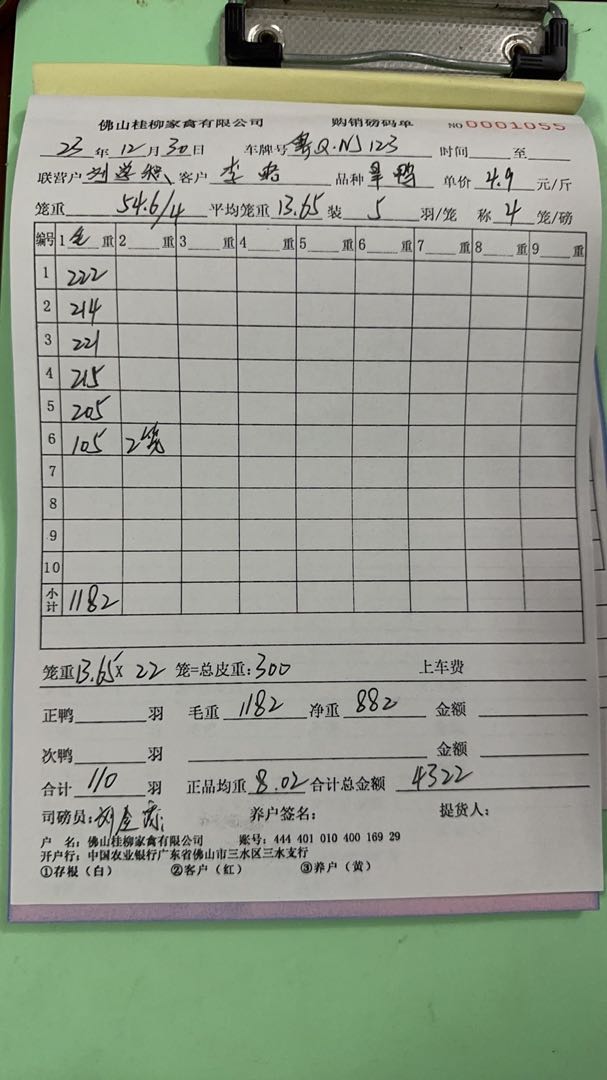 佛山桂柳家禽有限公司 购销磅码单 NO 0001055
23年12月30日 车牌号 粤Q·NJ123 时间 至
联营户 刘 客户 李 品种 鸭 单价 4.9 元/斤
笼重 54.6/4 平均笼重 13.65 装 5 羽/笼 称 4 笼/磅
编号 1 重 2 重 3 重 4 重 5 重 6 重 7 重 8 重 9 重
1 222
2 214
3 221
4 215
5 205
6 105 2笼
7
8
9
10
小计 1182
笼重13.65×22笼=总皮重:300 上车费
正鸭 羽 毛重 1182 净重 882 金额
次鸭 羽 金额
合计 110 羽 正品均重 8.02 合计总金额 4322
司磅员:刘 养户签名: 提货人:
户 名:佛山桂柳家禽有限公司 账号:444 401 010 400 169 29
开户行:中国农业银行广东省佛山市三水区三水支行
①存根(白) ②客户(红) ③养户(黄)